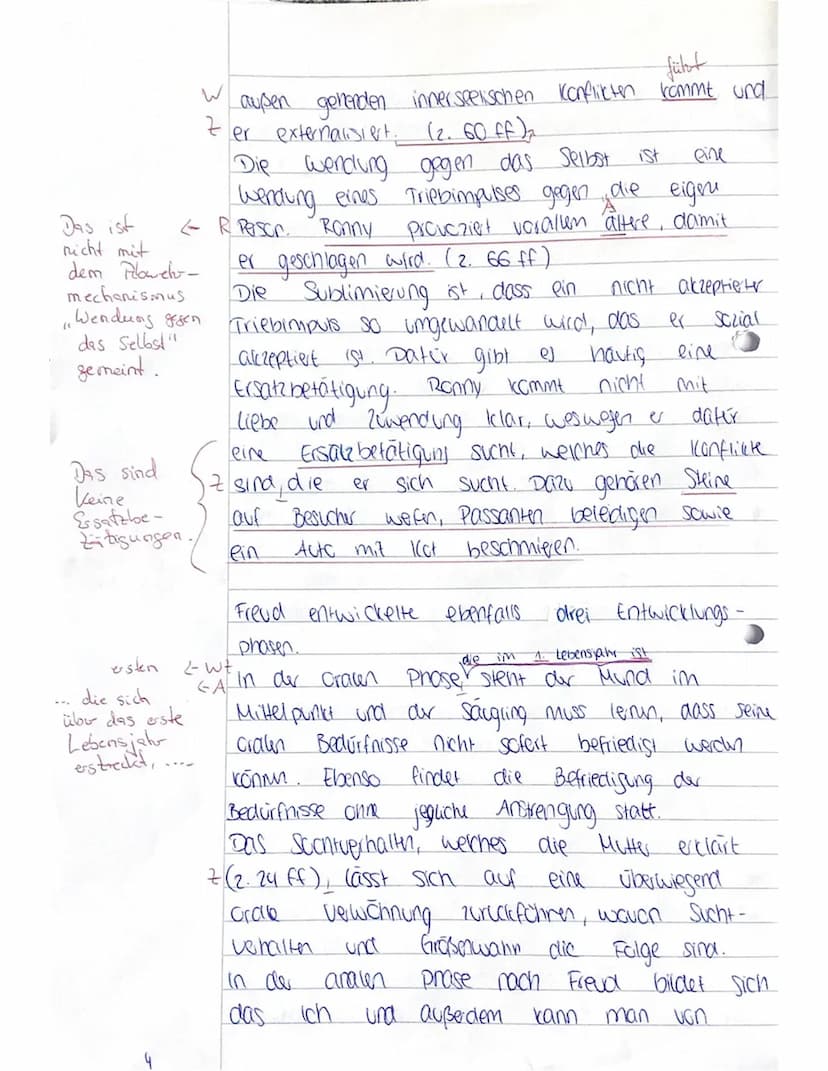 führt
W außen gehenden innerseelischen Konflikten kommt und
Z er externalisiert. (Z. 60 ff),
Die Wendung gegen das Selbst ist eine
Wendung eines Triebimpulses gegen die eigene
A
Das ist
nicht mit
dem Abwehr-
mechanismus
"Wendung gegen
das Selbst"
gemeint.
← R Person. Ronny provoziert vorallem ältere, damit
er geschlagen wird. (Z. 66 ff)
Die Sublimierung ist, dass ein nicht akzeptierter
Triebimpuls so umgewandelt wird, das er sozial
akzeptiert ist. Dafür gibt es häufig eine
Ersatzbetätigung. Ronny kommt nicht mit
Liebe und Zuwendung klar, weswegen er dafür
eine Ersatzbetätigung sucht, welches die Konflikte
Das sind
keine
Ersatzbe-
tätigungen.
Z sind, die er sich sucht. Dazu gehören Steine
auf Besucher wefen, Passanten beledigen sowie
ein Auto mit Kot beschmieren.
Freud entwickelte ebenfalls drei Entwicklungs-
phasen.
die im 1. Lebensjahr ist
ersten ← Wt
← A In der oralen Phase, steht der Mund im
... die sich
über das erste
Lebensjahr
erstreckt, ....
Mittelpunkt und der Säugling muss lernen, dass seine
oralen Bedürfnisse nicht sofort befriedigt werden
können. Ebenso findet die Befriedigung der
Bedürfnisse ohne jegliche Anstrengung statt.
Das Suchtverhalten, welches die Mutter erklärt
Z (Z. 24 ff), lässt sich auf eine überwiegend
orale Verwöhnung zurückführen, wovon Sucht-
verhalten und Größenwahn die Folge sind.
In der analen phase nach Freud bildet sich
das Ich und außerdem kann man von
4